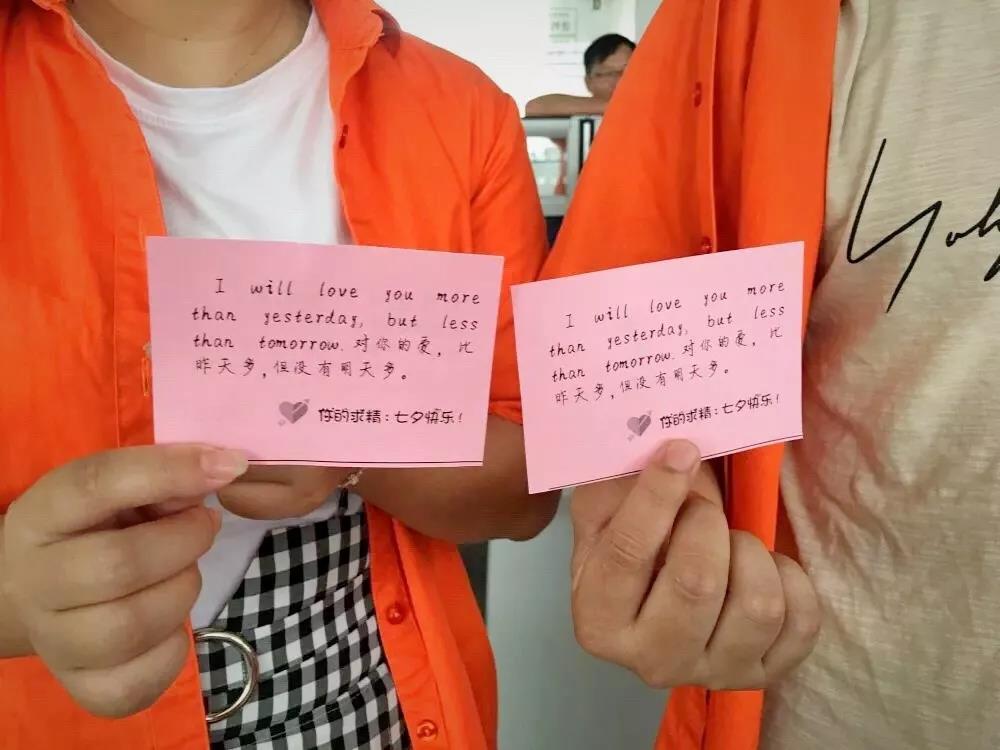 I will love you more
than yesterday, but less
than tomorrow. 对你的爱，比
昨天多，但没有明天多。
你的求精：七夕快乐！
I will love you more
than yesterday, but less
than tomorrow. 对你的爱，比
昨天多，但没有明天多。
你的求精：七夕快乐！